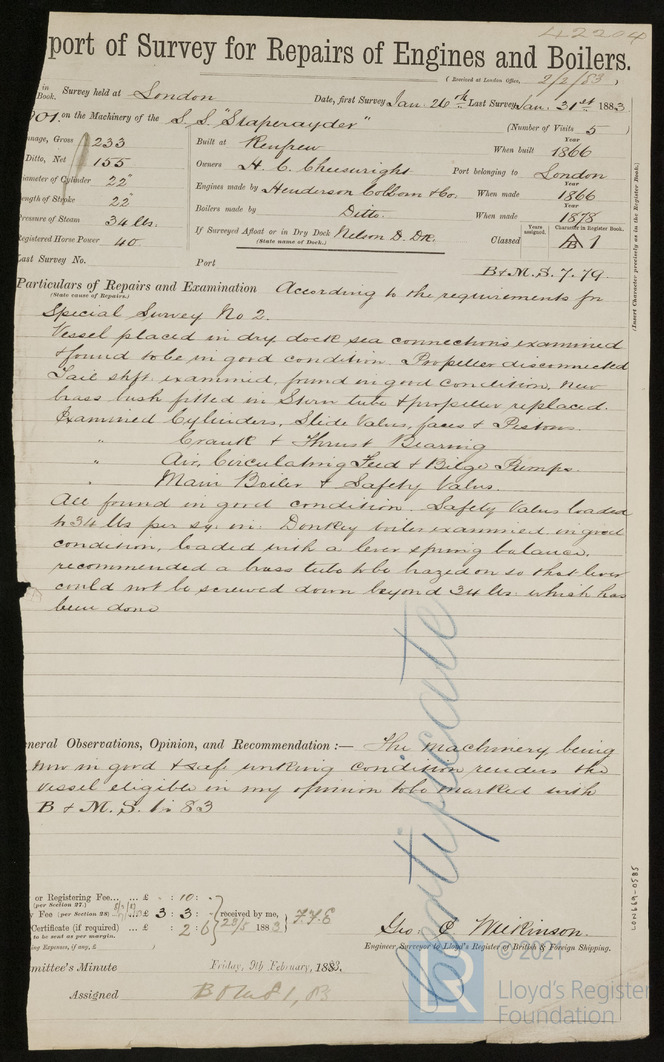 42204
port of Survey for Repairs of Engines and Boilers.
(Received at London Office, 2/2/83)
in Book. Survey held at London Date, first Survey Jan. 26th Last Survey Jan. 31st 1883
on the Machinery of the S.S. "Staperayder" (Number of Visits 5)
nnage, Gross 233 Built at Renfrew When built Year 1866
Ditto, Net 155 Owners H. C. Cheeswright Port belonging to London
iameter of Cylinder 22" Engines made by Henderson Colborn & Co. When made Year 1866
ength of Stroke 22" Boilers made by Ditto. When made Year 1878
ressure of Steam 34 lbs. If Surveyed Afloat or in Dry Dock Nelson D. Dk. (State name of Dock.) Classed Years assigned. Character in Register Book. A 1
egistered Horse Power 40
Last Survey No. Port B & M. S. 7.79
Particulars of Repairs and Examination According to the requirements for
(State cause of Repairs.)
Special Survey No 2.
Vessel placed in dry dock sea connections examined
& found to be in good condition. Propeller disconnected
Tail shft. examined, found in good condition, New
brass bush fitted in Stern tube & propeller replaced.
Examined Cylinders, Slide Valves, faces & Pistons.
" Crank & Thrust Bearing
" Air, Circulating Feed & Bilge Pumps.
" Main Boiler & Safety Valves.
All found in good condition. Safety Valves loaded
to 34 lbs per sq. in. Donkey boiler examined in good
condition, loaded with a lever spring balance,
recommended a brass tube to be brazed on so that lever
could not be screwed down beyond 34 lbs. which has
been done
neral Observations, Opinion, and Recommendation :— The machinery being
now in good & safe working condition renders the
vessel eligible in my opinion to be marked with
B & M. S. 1. 83
Certificate
or Registering Fee... ... £ : 10 : -
(per Section 27.)
Fee (per Section 28) £ 3 : 3 : - received by me,
Certificate (if required) ... £ : 2 : 6 1883
to be sent as per margin.
ling Expenses, if any, £
Geo: C Wilkinson.
Engineer Surveyor to Lloyd's Register of British & Foreign Shipping.
mmittee's Minute Friday, 9th February, 1883.
Assigned B & M S 1, 83
(Insert Character precisely as in the Register Book.)
LON669-0585
LR © 2021
Lloyd's Register
Foundation